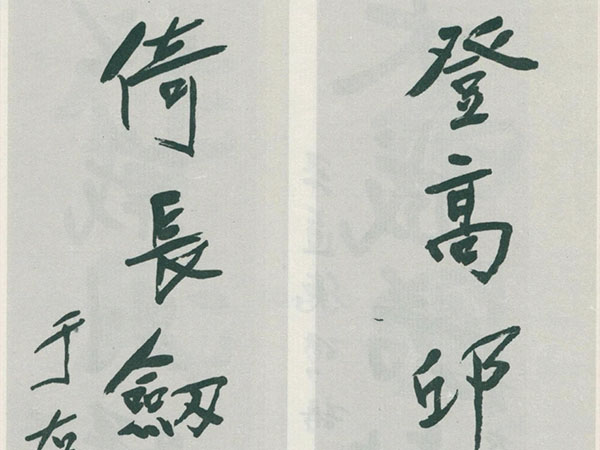 登高邱
倚長劔
于右